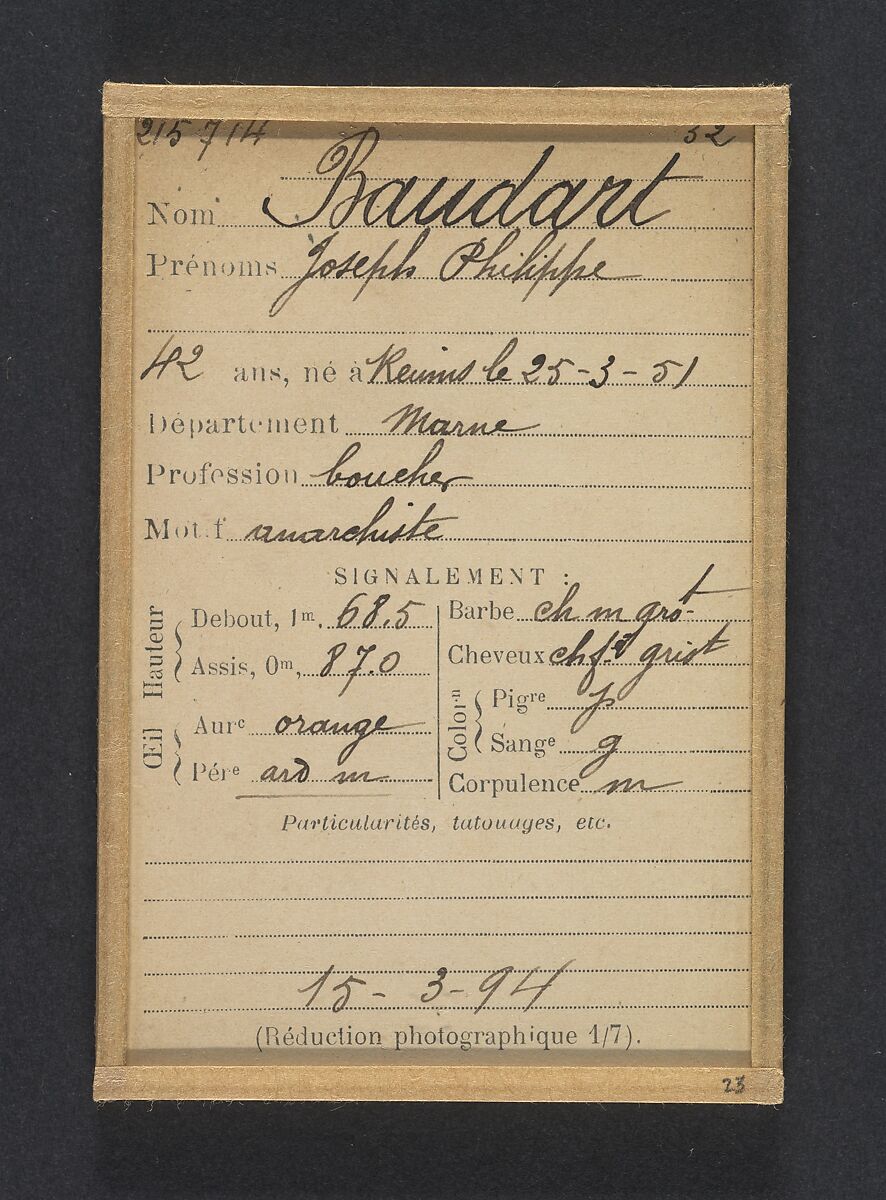 215714 52
Nom Baudart
Prénoms Joseph Philippe
42 ans, né à Reims le 25-3-51
Département Marne
Profession boucher
Motif anarchiste
SIGNALEMENT :
Hauteur
Debout, 1m. 68.5
Assis, 0m, 87.0
Œil
Aure orange
Pére ard m
Barbe ch m grst
Cheveux chf grist
Colorn
Pigre p
Sange g
Corpulence m
Particularités, tatouages, etc.
15-3-94
(Réduction photographique 1/7).
23